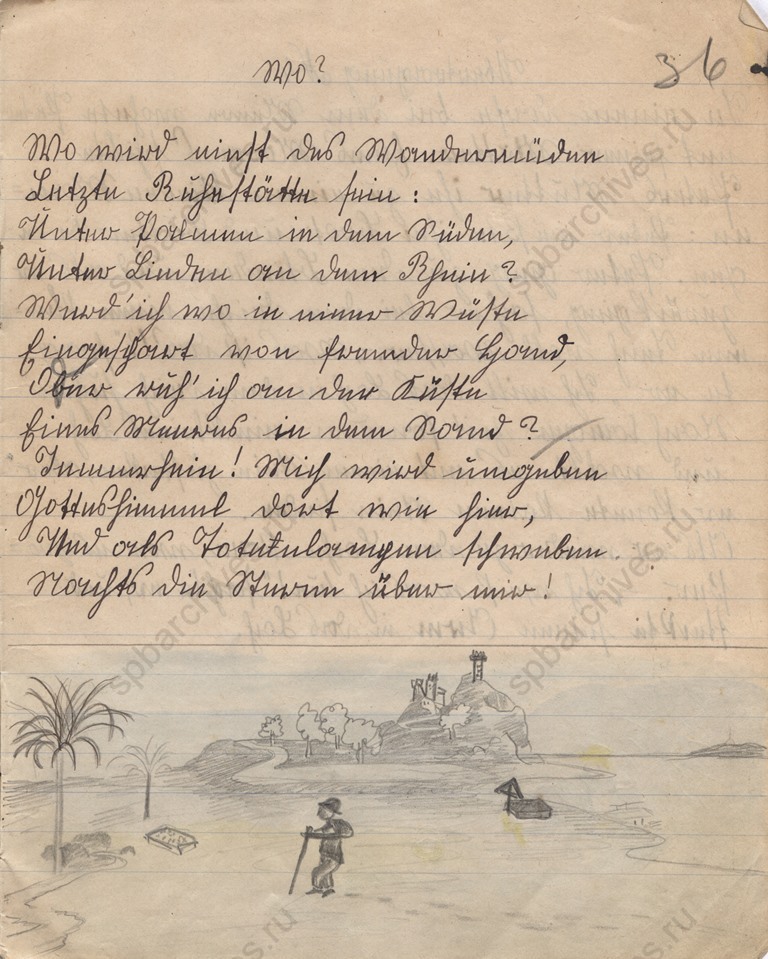 Wo?
36
Wo wird einst des Wandermüden
Letzte Ruhestätte sein:
Unter Palmen in dem Süden,
Unter Linden an dem Rhein?
Werd' ich wo in einer Wüste
Eingescharrt von fremder Hand,
Ober ruh' ich an der Küste
Eines Meeres in dem Sand?
Immerhin! Mich wird umgeben
Gotteshimmel dort wie hier,
Und als Totenlampen schweben
Nachts die Sterne über mir!
spbarchives.ru
spbarchives.ru
spbarchives.ru
spbarchives.ru